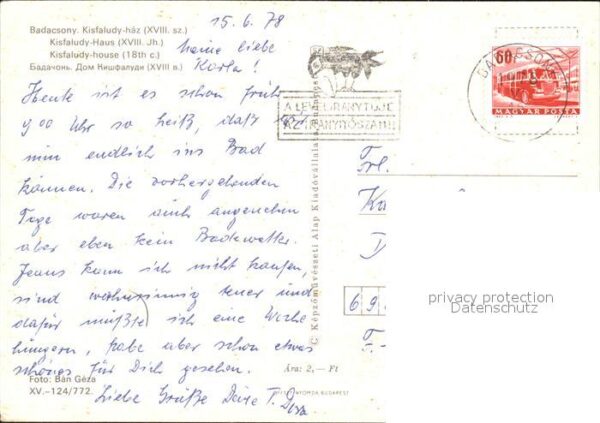 15.6.78
Badacsony. Kisfaludy-ház (XVIII. sz.)
Kisfaludy-Haus (XVIII. Jh.)
Kisfaludy-house (18th c.)
Бадачонь. Дом Кишфалуди (XVIII в.)
meine liebe
Karla!
Heute ist es schon früh
9.00 Uhr so heiß, daß wir
nun endlich ins Bad
können. Die vorhergehenden
Tage waren auch angenehm
aber eben kein Badewetter.
Jeans kann ich nicht kaufen,
sind wahnsinnig teuer und
dafür müßte ich eine Woche
hungern, habe aber schon etwas
schönes für Dich gesehen.
Foto: Bán Géza
XV.-124/772.
Liebe Grüße Deine T.
A LEVÉL IRÁNYÍTÓJA
AZ IRÁNYÍTÓSZÁM!
60f
MAGYAR POSTA
BADACSONY
© Képzőművészeti Alap Kiadóvállalata, Budapest
Frl.
Ka
69
Ára: 2,— Ft
NYOMDA BUDAPEST
privacy protection
Datenschutz